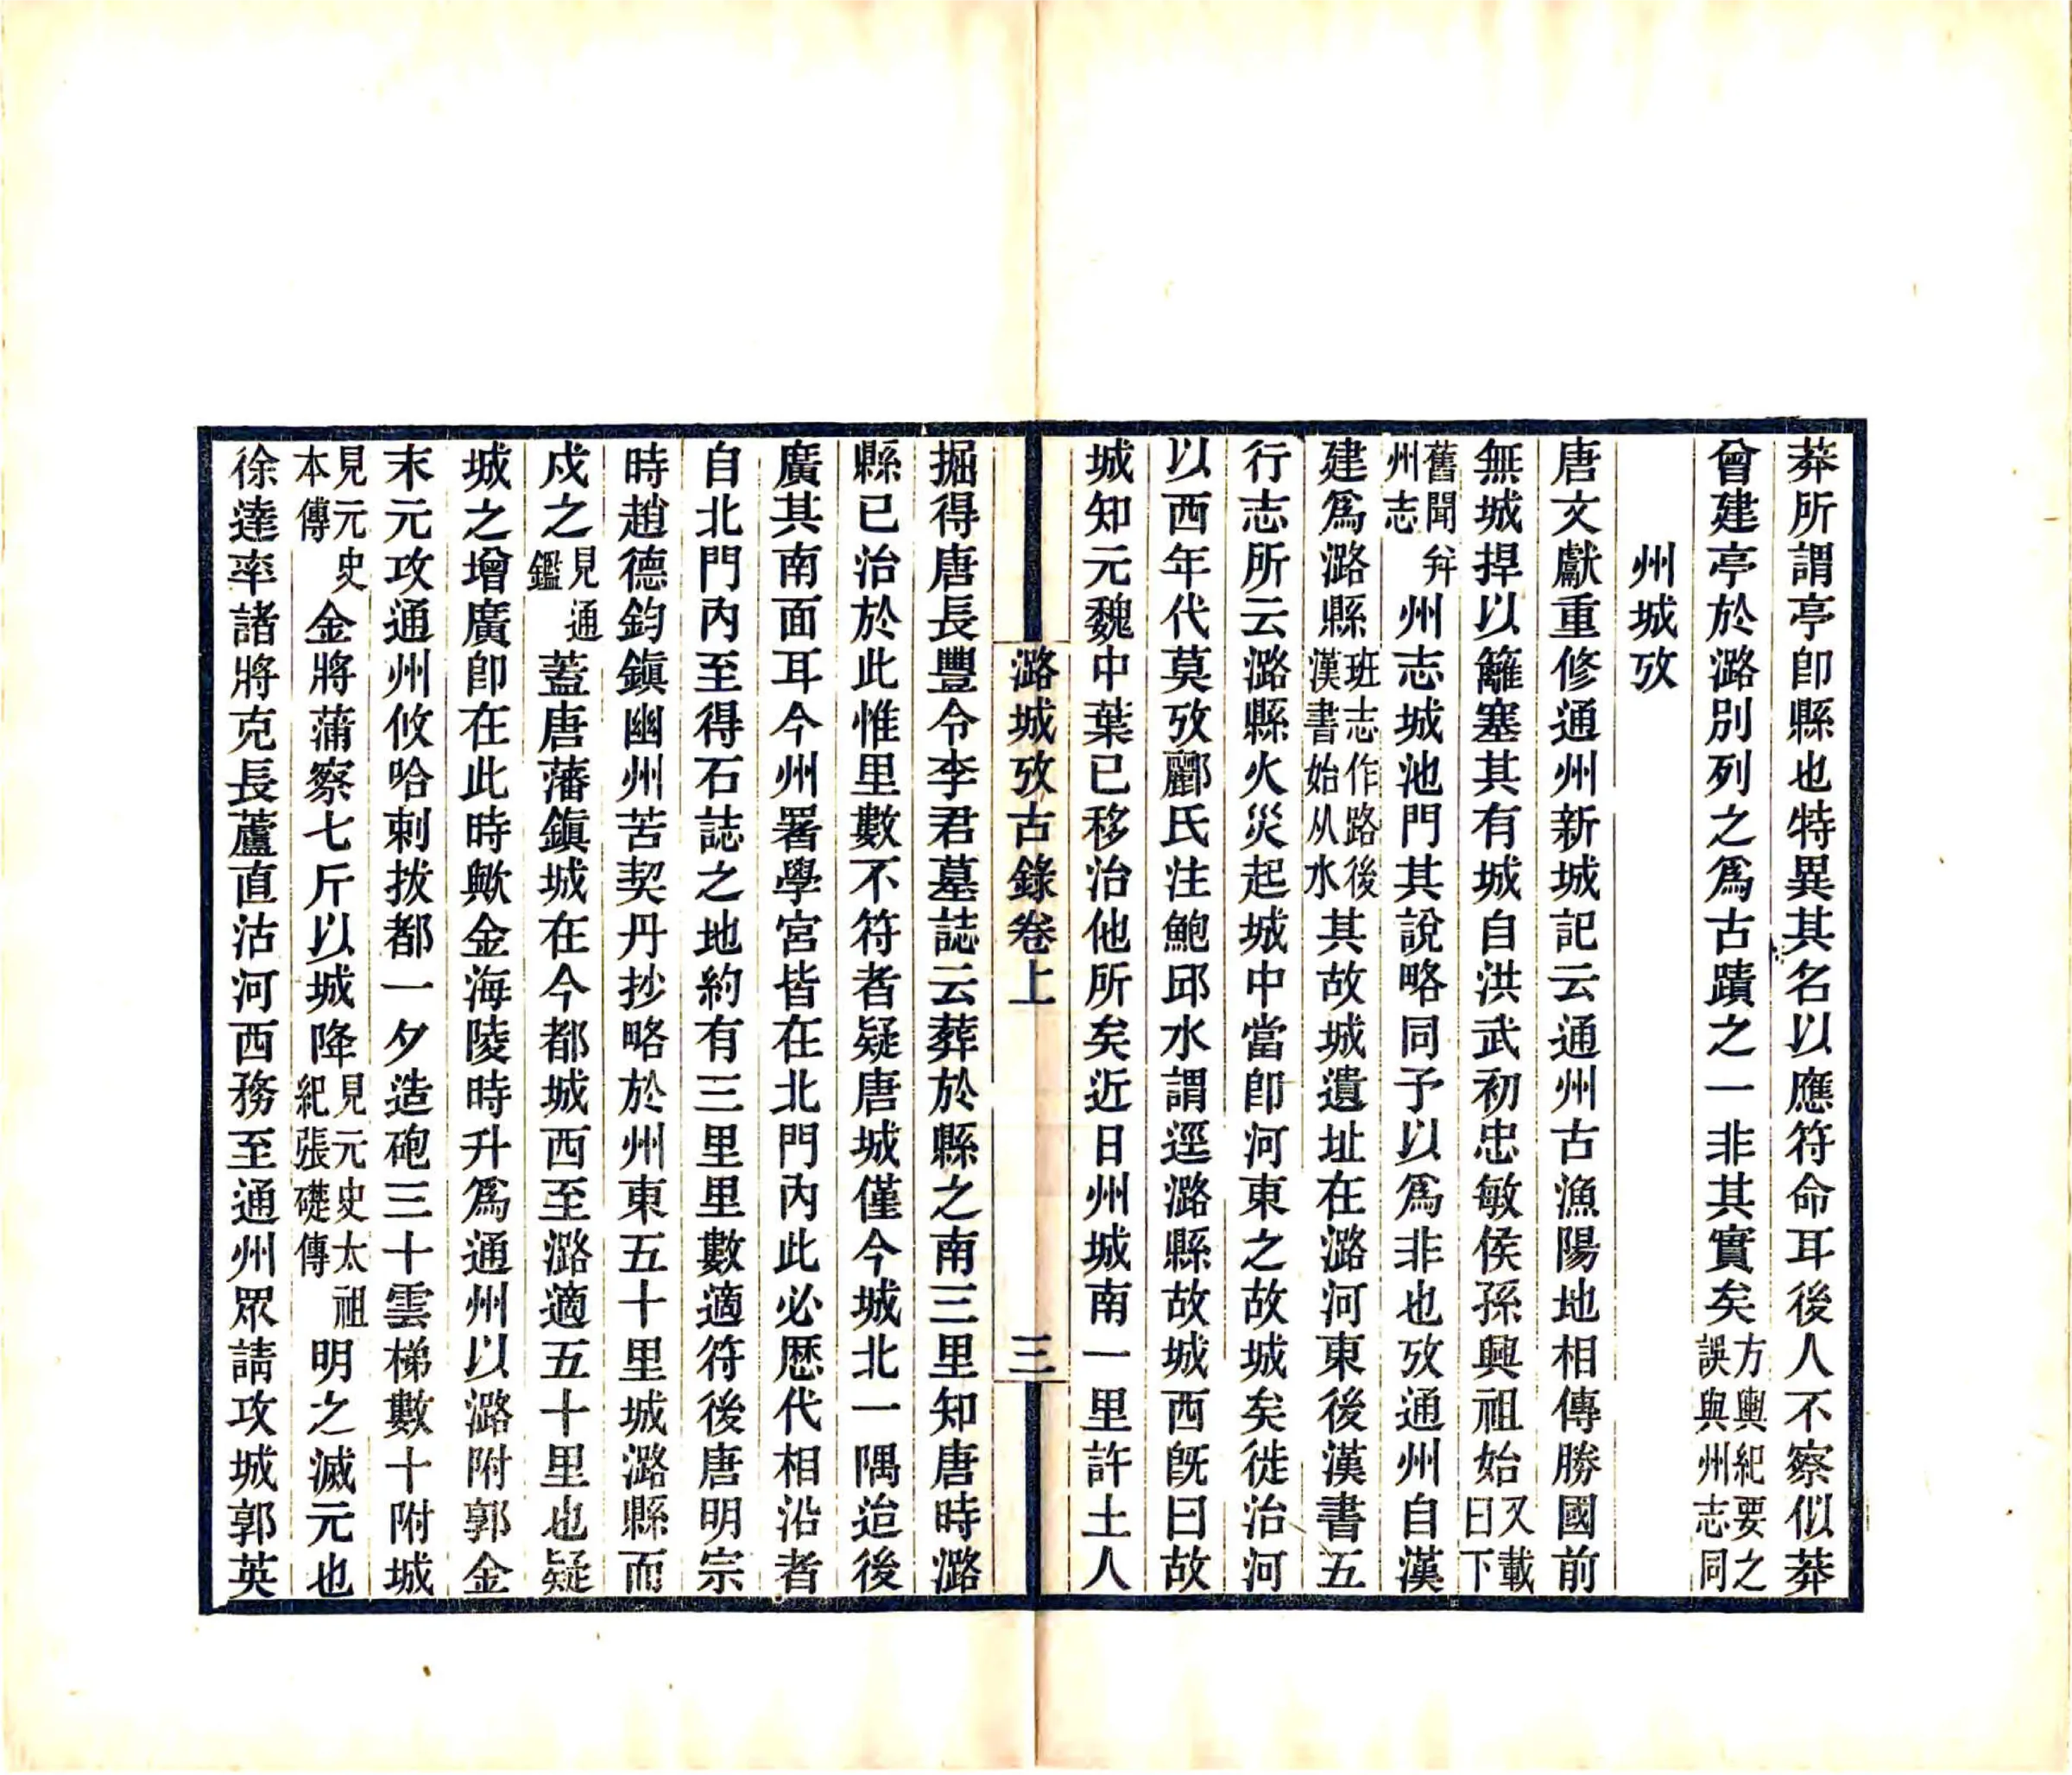 莽所謂亭卽縣也特異其名以應符命耳後人不察似莽
曾建亭於潞別列之爲古蹟之一非其實矣方輿紀要之誤與州志同
州城攷
唐文獻重修通州新城記云通州古漁陽地相傳勝國前
無城捍以籬塞其有城自洪武初忠敏侯孫興祖始又載日下
舊聞幷州志州志城池門其說略同予以爲非也攷通州自漢
建爲潞縣班志作路後漢書始从水其故城遺址在潞河東後漢書五
行志所云潞縣火災起城中當卽河東之故城矣徙治河
以西年代莫攷酈氏注鮑邱水謂逕潞縣故城西旣曰故
城知元魏中葉已移治他所矣近日州城南一里許土人
潞城攷古錄卷上 三
掘得唐長豐令李君墓誌云葬於縣之南三里知唐時潞
縣已治於此惟里數不符者疑唐城僅今城北一隅迨後
廣其南面耳今州署學宮皆在北門內此必歷代相沿者
自北門內至得石誌之地約有三里里數適符後唐明宗
時趙德鈞鎭幽州苦契丹抄略於州東五十里城潞縣而
戍之見通鑑蓋唐藩鎭城在今都城西至潞適五十里也疑
城之增廣卽在此時歟金海陵時升爲通州以潞附郭金
末元攻通州攸哈剌拔都一夕造砲三十雲梯數十附城
見元史本傳金將蒲察七斤以城降見元史太祖紀張礎傳明之滅元也
徐達率諸將克長蘆直沽河西務至通州眾請攻城郭英